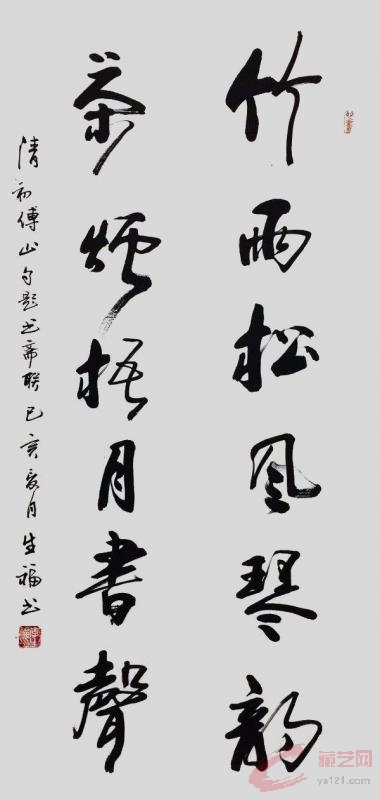 竹雨松风琴韵
茶煙梧月書聲
清初傅山句题书斋联己亥夏月生福书
藏艺网
ys121.com